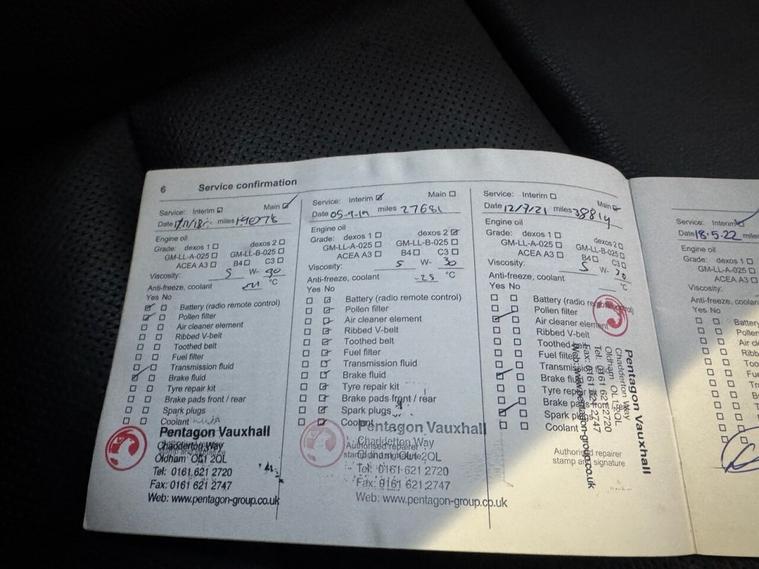 6 Service confirmation
Service: Interim Main
Date miles
Engine oil
Grade: dexos 1 dexos 2
GM-LL-A-025 GM-LL-B-025
ACEA A3 B4 C3
Viscosity: 5 W-
Anti-freeze, coolant °C
Yes No
Battery (radio remote control)
Pollen filter
Air cleaner element
Ribbed V-belt
Toothed belt
Fuel filter
Transmission fluid
Brake fluid
Tyre repair kit
Brake pads front / rear
Spark plugs
Coolant
Pentagon Vauxhall
Chadderton Way
Oldham OL1 2OL
Tel: 0161 621 2720
Fax: 0161 621 2747
Web: www.pentagon-group.co.uk
Service: Interim Main
Date 05-9-19 miles 27681
Engine oil
Grade: dexos 1 dexos 2
GM-LL-A-025 GM-LL-B-025
ACEA A3 B4 C3
Viscosity: 5 W- 30
Anti-freeze, coolant -25 °C
Yes No
Battery (radio remote control)
Pollen filter
Air cleaner element
Ribbed V-belt
Toothed belt
Fuel filter
Transmission fluid
Brake fluid
Tyre repair kit
Brake pads front / rear
Spark plugs
Coolant
Pentagon Vauxhall
Chadderton Way
Oldham OL1 2OL
Tel: 0161 621 2720
Fax: 0161 621 2747
Web: www.pentagon-group.co.uk
Service: Interim Main
Date 12/7/21 miles 38814
Engine oil
Grade: dexos 1 dexos 2
GM-LL-A-025 GM-LL-B-025
ACEA A3 B4 C3
Viscosity: 5 W- 30
Anti-freeze, coolant °C
Yes No
Battery (radio remote
Pollen filter
Air cleaner element
Ribbed V-belt
Toothed
Fuel filter
Brake
Tyre
Brake pads
Spark
Coolant
Authorised repairer
stamp and signature
Pentagon Vauxhall
Chadderton Way
Oldham OL1 2OL
Tel: 0161 621 2720
Fax: 0161 621 2747
Web: www.pentagon-group.co.uk
Service: Interim
Date 18.5.22 miles
Engine oil
Grade: dexos 1
GM-LL-A-025
ACEA A3
Viscosity:
Anti-freeze, coolant
Yes No